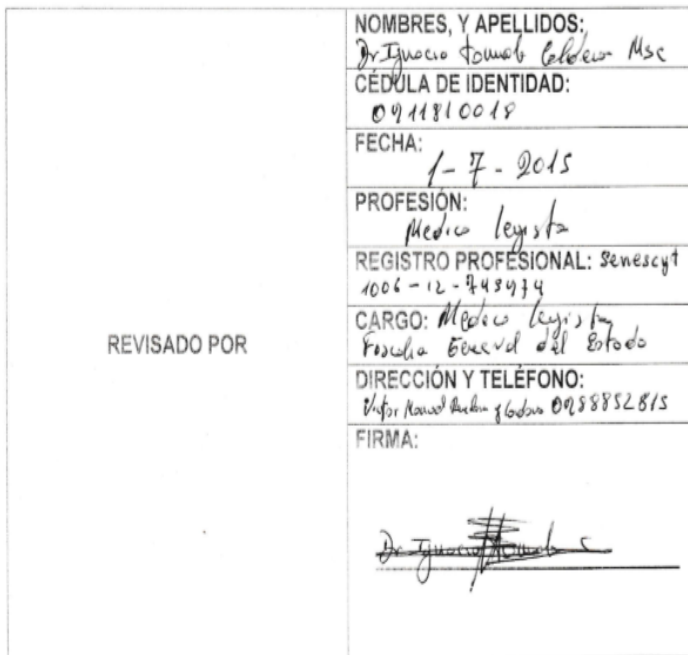 REVISADO POR
NOMBRES, Y APELLIDOS:
Dr Ignacio Msc
CÉDULA DE IDENTIDAD:
0911810018
FECHA:
1-7-2015
PROFESIÓN:
Medico legista
REGISTRO PROFESIONAL: Senescyt
1006-12-
CARGO: Medico legista
Fiscalia General del Estado
DIRECCIÓN Y TELÉFONO:
Victor Manuel
FIRMA:
Dr Ignacio